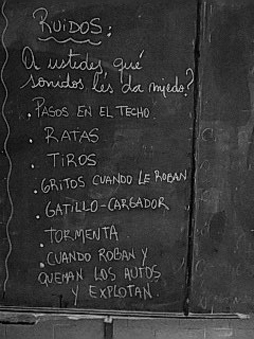 RUIDOS:
A ustedes qué
sonidos les da miedo?
. PASOS EN EL TECHO
. RATAS
. TIROS
. GRITOS CUANDO LE ROBAN
. GATILLO-CARGADOR
. TORMENTA
. CUANDO ROBAN Y
QUEMAN LOS AUTOS
Y EXPLOTAN.